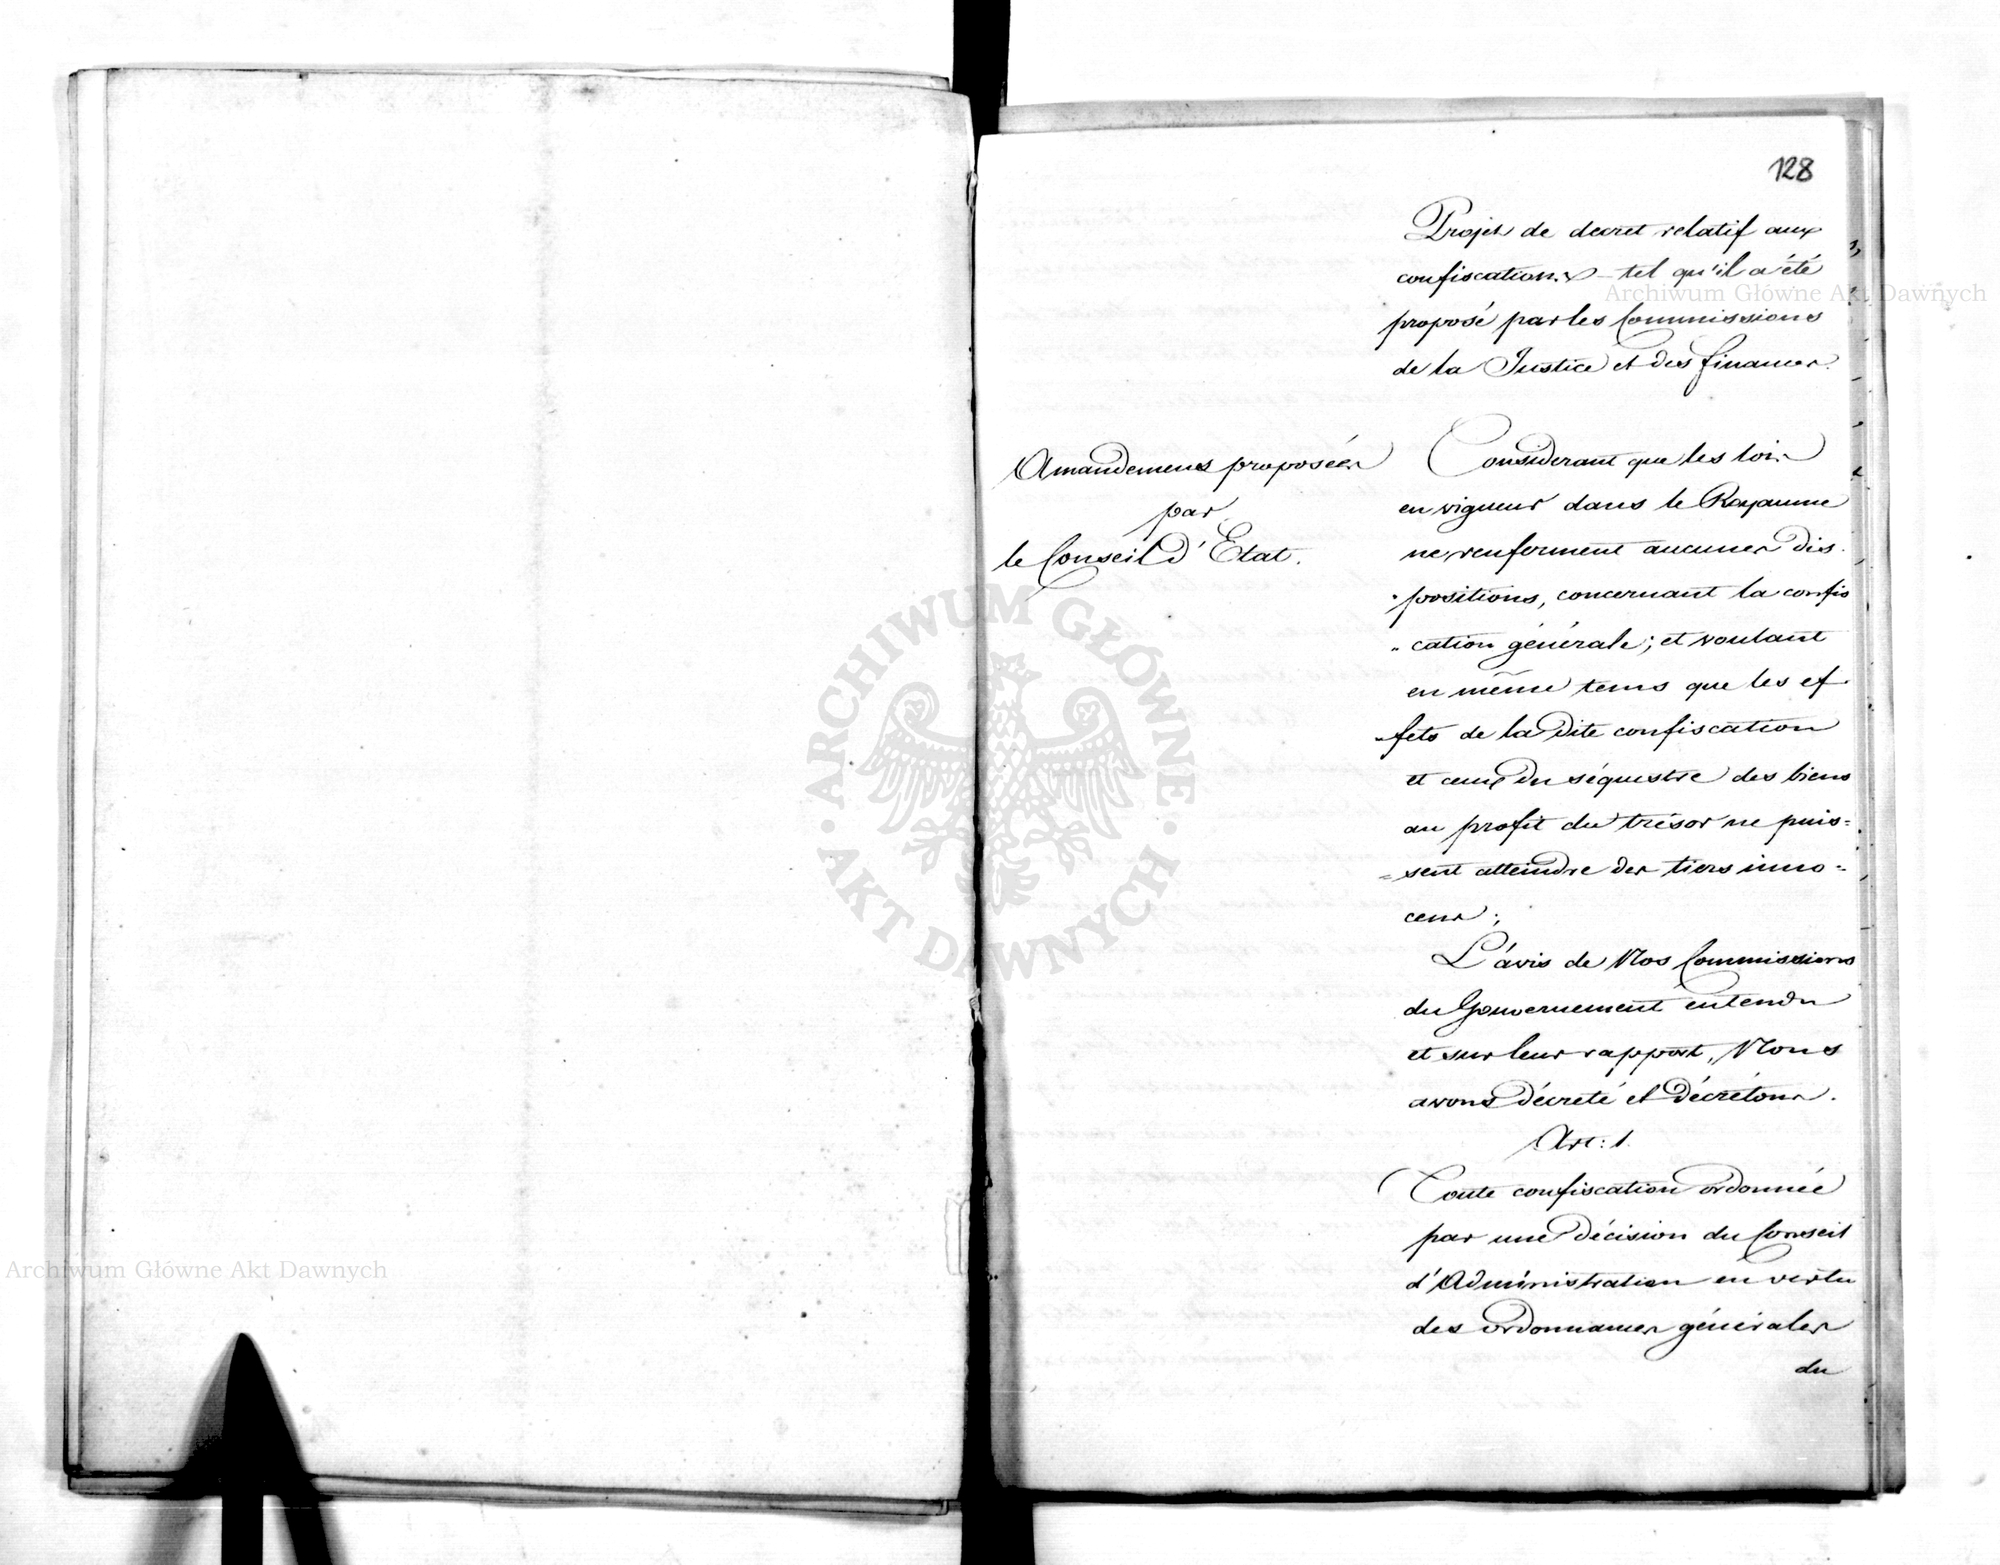 128
Projet de decret relatif aux
confiscations tel qu'il a été
proposé par les Commissions
de la Justice et des finances.
Amandemens proposées
par
le Conseil d'Etat.
Considerant que les loix
en vigueur dans le Royaume
ne renferment aucunes dis-
positions, concernant la confis
cation générale; et voulant
en même tems que les ef-
fets de la dite confiscation
et ceux du séquestre des biens
au profit du trésor ne puis=
=sent atteindre des tiers inno=
cens;
L'avis de Nos Commissions
du Gouvernement entendu
et sur leur rapport, Nous
avons décreté et décrétons.
Art: 1.
Toute confiscation ordonnée
par une décision du Conseil
d'Administration en vertu
des ordonnances générales
du
Archiwum Główne Akt Dawnych
Archiwum Główne Akt Dawnych
ARCHIWUM GŁÓWNE · AKT DAWNYCH ·